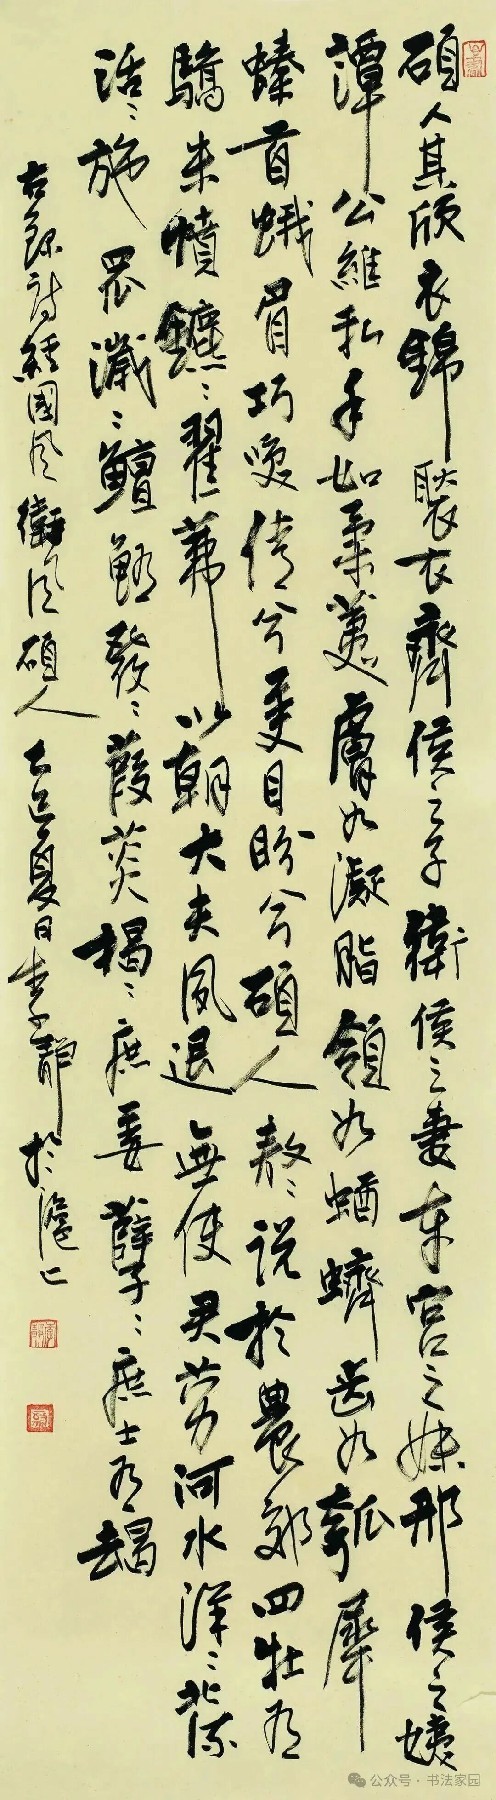 碩人其頎衣錦褧衣齊侯之子衛侯之妻東宮之妹邢侯之姨
譚公維私手如柔荑膚如凝脂領如蝤蠐齿如瓠犀
螓首蛾眉巧咲倩兮美目盼兮碩人敖〻說於農郊四牡有
驕朱幩鑣〻翟茀以朝大夫夙退無使君勞河水洋〻北流
活〻施罛濊〻鱣鮪發〻葭菼揭〻庶姜孽〻庶士有朅
右錄詩經國風衛風碩人 乙巳夏日李靜於滬上
公众号·书法家园